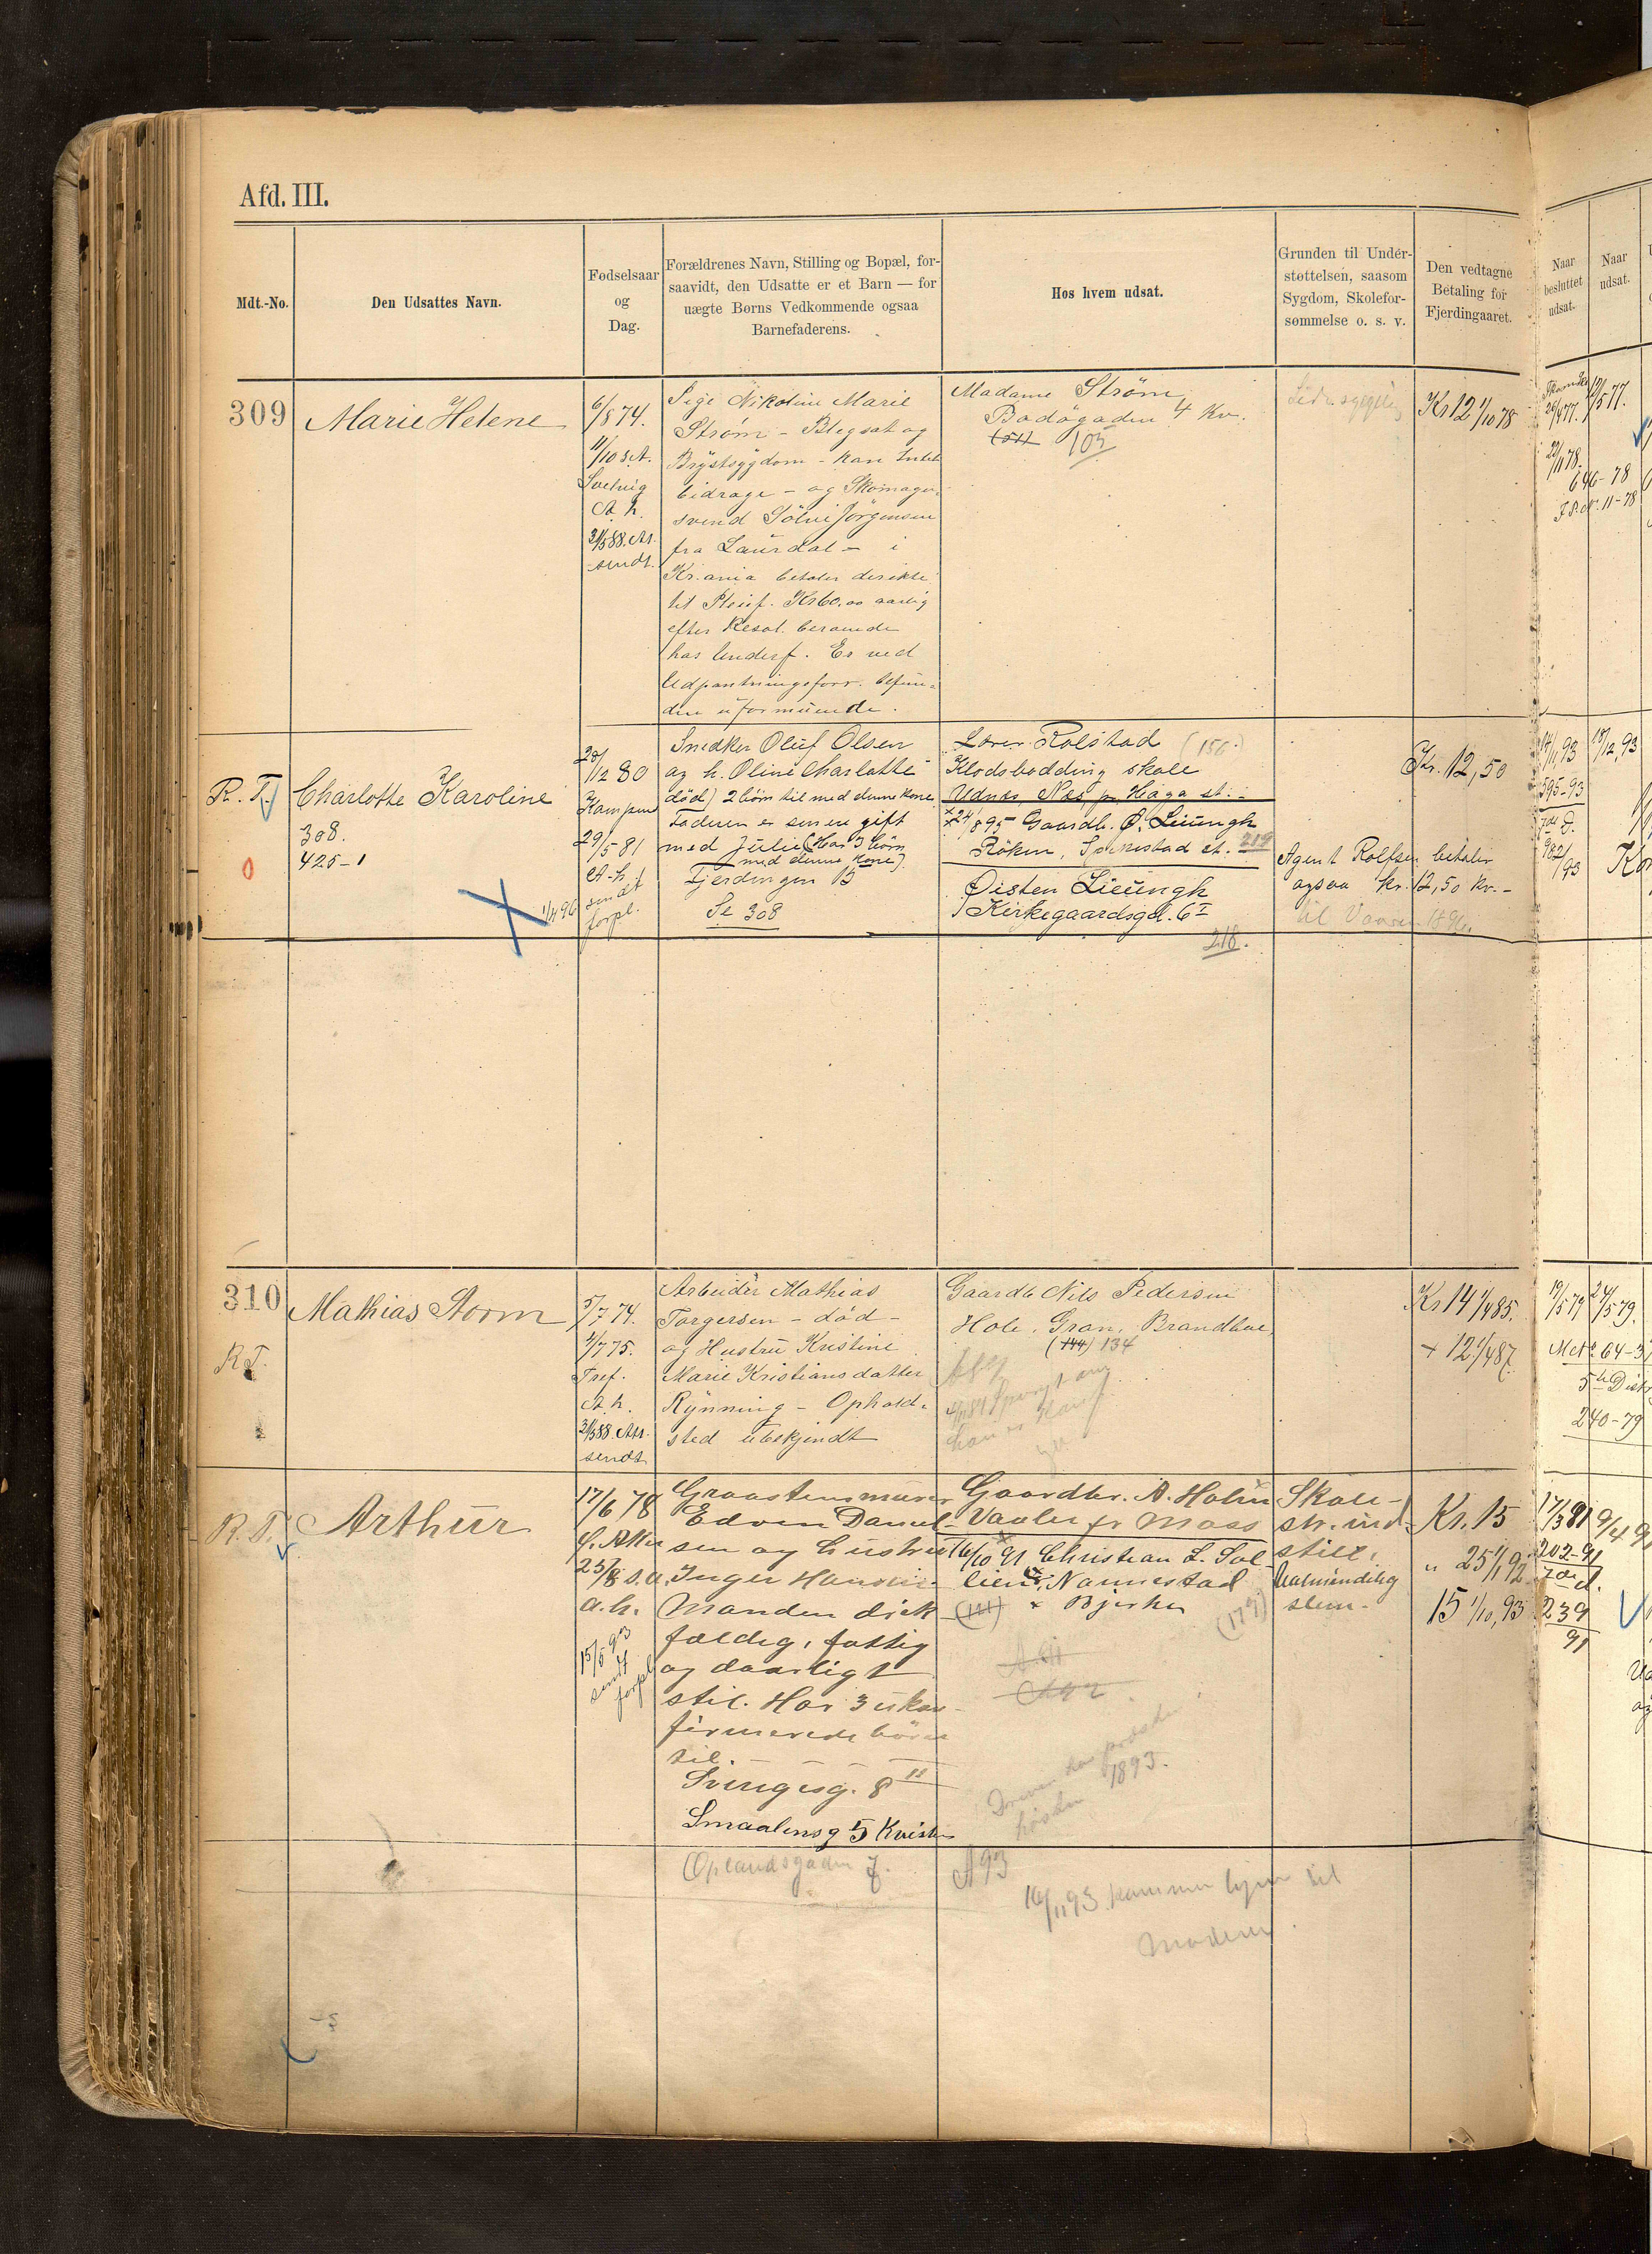 Afd. III.
Mdt.-No.
Den Udsattes Navn.
Fødselsaar
og
Dag.
Forældrenes Navn, Stilling og Bopæl, for-
saavidt, den Udsatte er et Barn — for
uægte Børns Vedkommende ogsaa
Barnefaderens.
Hos hvem udsat.
Grunden til Under-
støttelsen, saasom
Sygdom, Skolefor-
sømmelse o. s. v.
Den vedtagne
Betaling for
Fjerdingaaret.
Naar
besluttet
udsat.
Naar
udsat.
309
Marie Helene
6/8 74.
11/10 s.A.
Svelvig
A. h.
21/5 88. Att.
sendt.
Pige Nikoline Marie
Strøm - Blegsot og
Brystsygdom - kan Intet
bidrage - og Skomager-
svend Sölvi Jörgensen
fra Laurdal - i
Kr.ania betaler direkte
til Pleief. Kr 60.00 aarlig
efter Resol. beroende
hos Underf. Er ved
Udpantningsforr. befun-
den uformuende.
Madame Strøm,
Bodögaden 4 Kv.
(51) 103
Kr 12 1/10 78
26/4 77.
1/5 77.
22/11 78.
646-78
11-78
R. T.
Charlotte Karoline
308.
425-1
0
1/4 96
20/12 80
Kampen
29/5 81
A-h.
sendt
forpl.
Snedker Oluf Olsen
og h. Oline Charlotte
död) 2 börn til med denne kone
Faderen er senere gift
med Julie (Har 3 börn
med denne kone)
Fjerdingen 15
Se 308
Lærer Rolstad (156.)
Klodsbodding skole
Udnes Næs pr Haga st. -
24/8 95 Gaardb. Ø. Lieungh
Röken, Spikestad st. - 219
Øisten Lieungh
Kirkegaardsgd. 6 I
218.
Agent Rolfsen betaler
ogsaa kr. 12,50 Kv. -
til
Kr. 12,50
14/11 93
18/12 93
595-93
982/93
310
R.T.
Mathias Storm
5/7 74.
4/7 75.
Tref.
A. h.
21/5 88. Att.
sendt
Arbeider Mathias
Torgersen - död -
og Hustru Kristine
Marie Kristiansdatter
Rynning - Ophold-
sted ubekjendt
Gaardb Nils Pedersen
Hole, Gran, Brandbue
(144) 134
Kr 14 1/4 85.
+ 12 1/4 87.
19/5 79
24/5 79.
64-3
5te Distr
240-79
R. T.
Arthur
17/6 78
Ø. Aker
25/8 s.a.
a. h.
15/5 93
sendt
forpl
Graastensmurer
Edven Daniel-
sen og hustru
Inger
Manden drik-
fældig, fattig
og daarligt
stil. Har 3 ukon-
firmerede börn
til.
Svingesg. 8 II
Smaalensg 5 Kvisten
Oplandsgaden 7.
Gaardbr. A. Holm
Vaaler pr Moss
16/10 91 Christian L. Sol-
lien, Nannestad
(121) x Bjerke (177)
høsten 1893.
A 93
16/11 93 kommen hjem til
Moderen.
Skole-
str. ind-
still.
Ualmindelig
slem.
Kr. 15
" 25 1/1 92
15 1/10, 93
17/3 91
9/4 9
202-91
7de d.
239
91